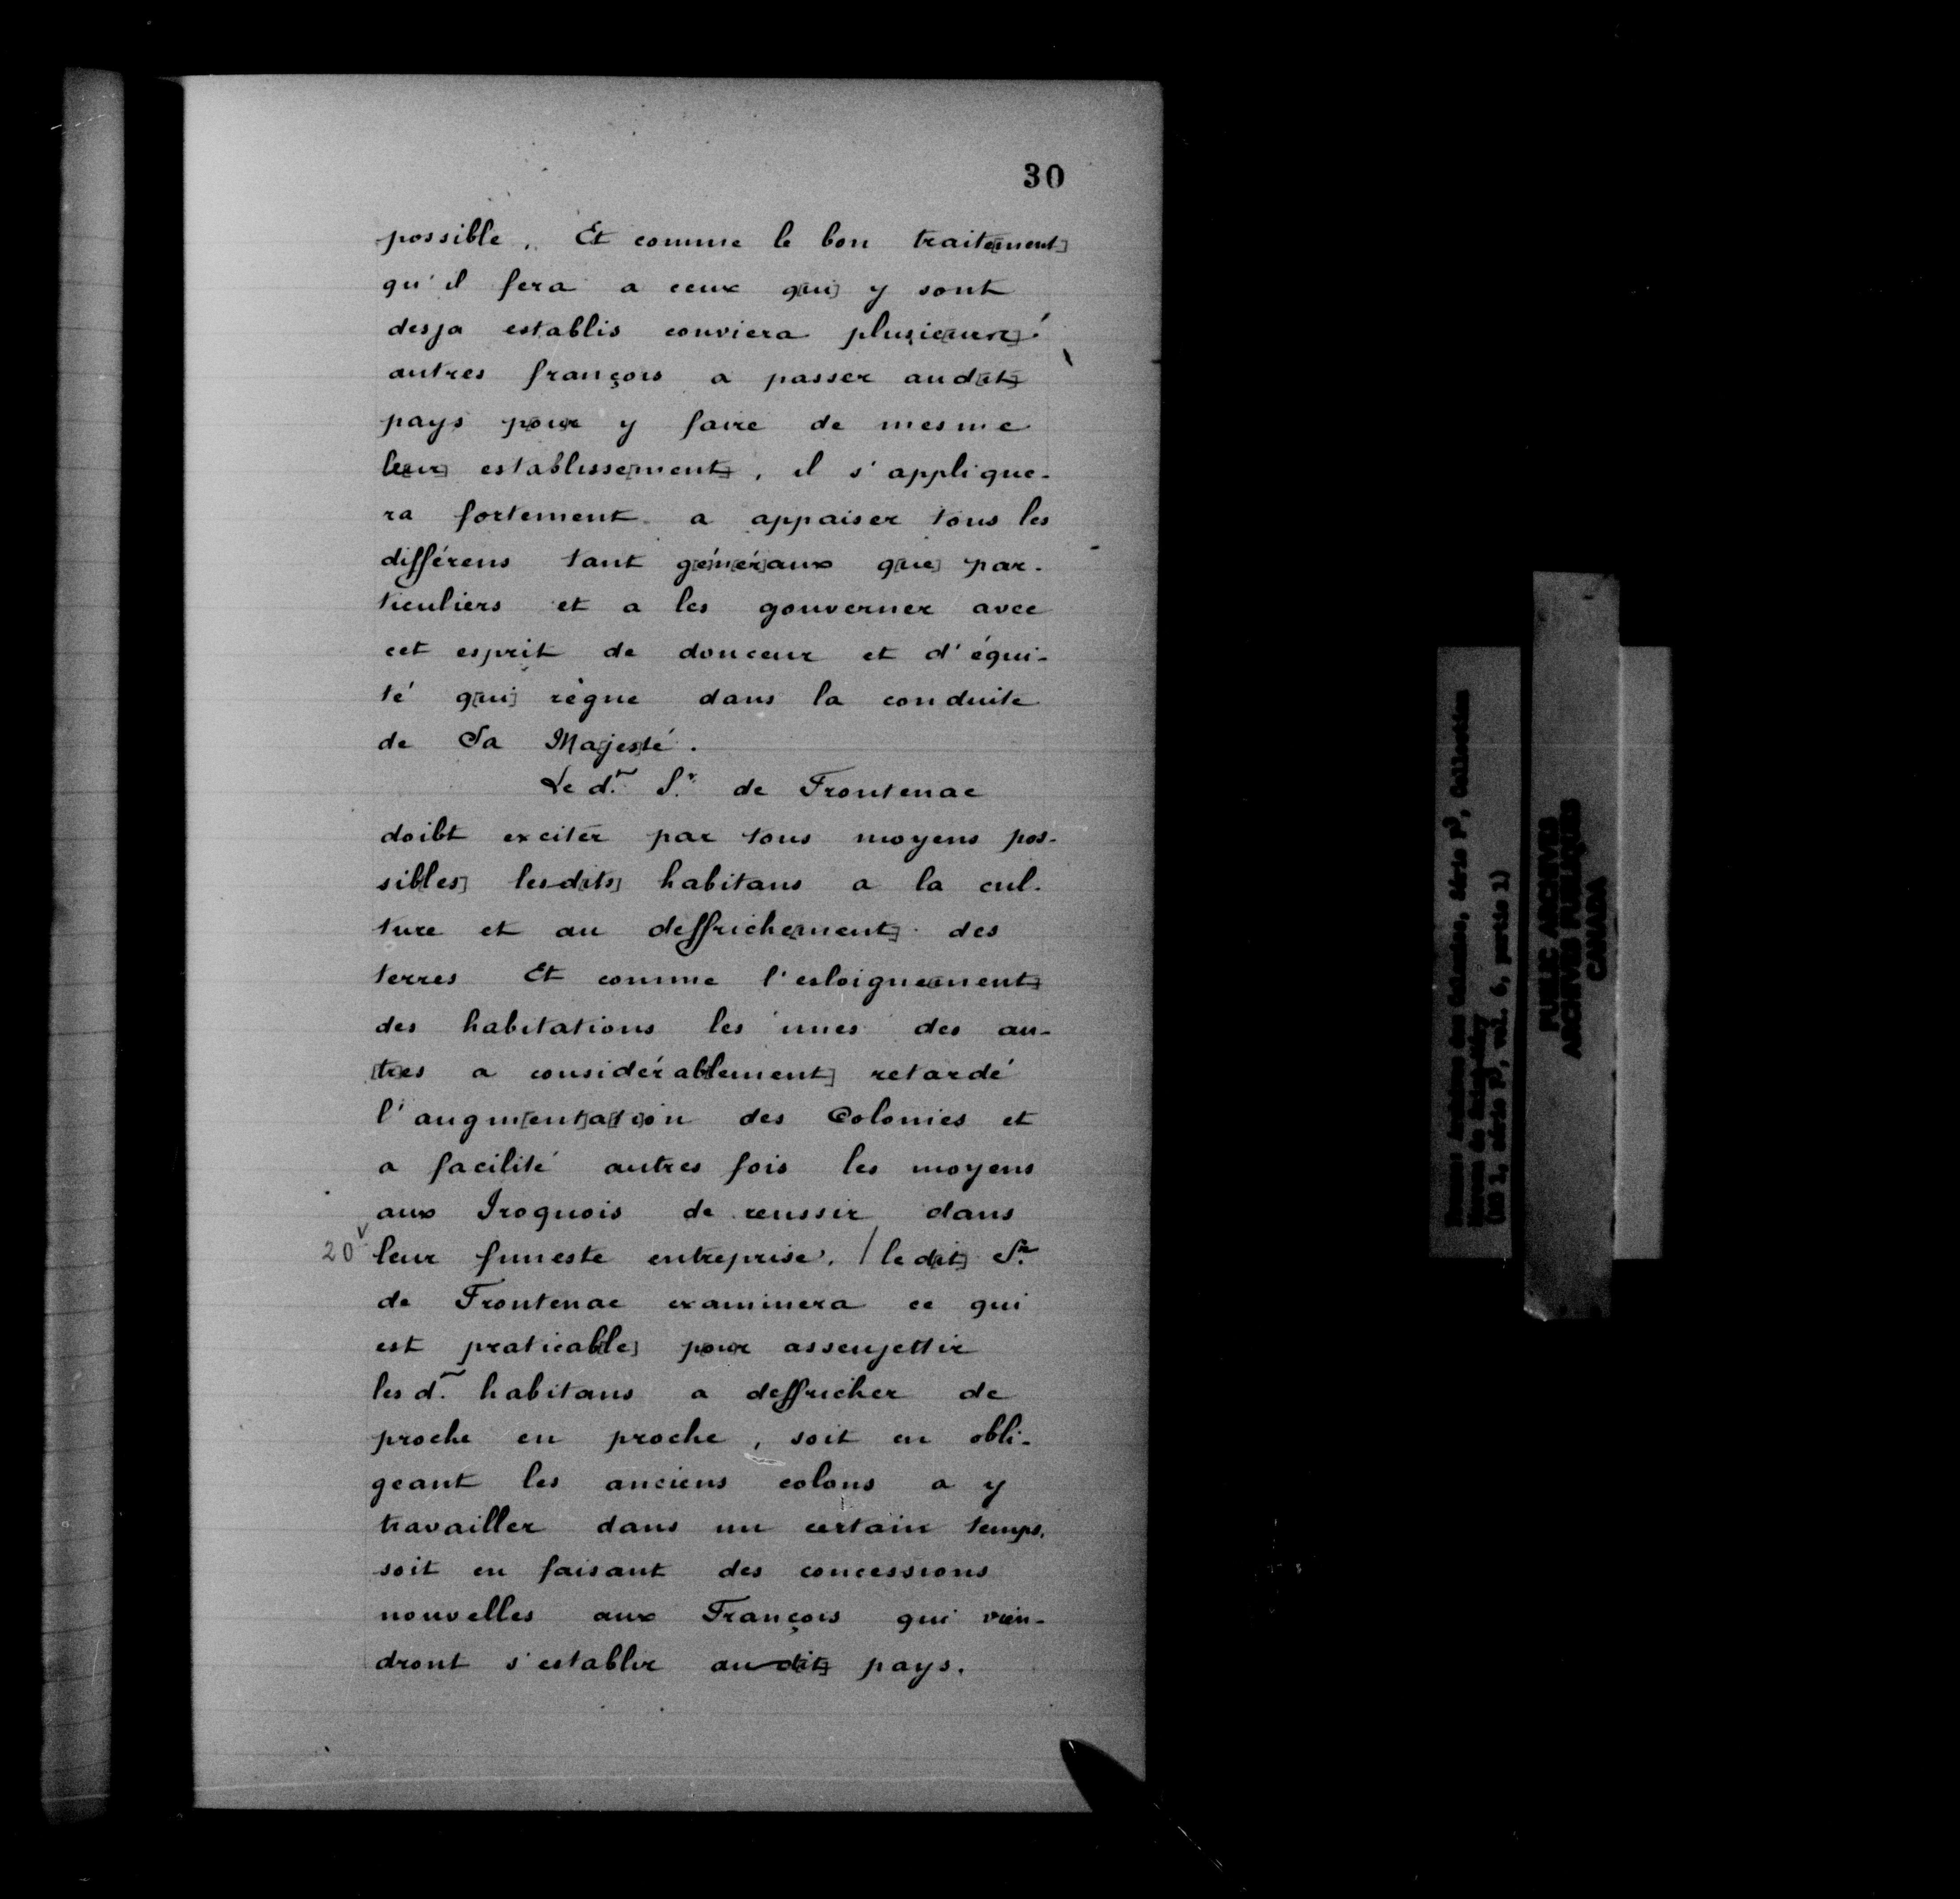 30
possible. Et comme le bon trait[ement]
qu'il fera a ceux q[ui] y sont
desja establis conviera plusie[urs]
autres françois a passer aud[it]
pays p[ou]r y faire de mesme
le[ur] establisse[ment], il s'applique-
ra fortement a appaiser tous les
différens tant g[é]n[ér]aux q[ue] par-
ticuliers et a les gouverner avec
cet esprit de douceur et d'équi-
té q[ui] règne dans la conduite
de Sa Ma[jes]té.
Le d.t S.r de Frontenac
doibt exciter par tous moyens pos-
sib[les] lesd[its] habitans a la cul-
ture et au deffriche[ment] des
terres Et comme l'esloigne[ment]
des habitations les unes des au-
[tr]es a considérab[lement] retardé
l'augm[ent]a[ti]on des Colonies et
a facilité autres fois les moyens
aux Iroquois de reussir dans
20v leur funeste entreprise. / le d[it] S.r
de Frontenac examinera ce qui
est praticab[le] p[ou]r asseujettir
les d.t habitans a deffricher de
proche en proche, soit en obli-
geant les anciens colons a y
travailler dans un certain temps.
soit en faisant des concessions
nouvelles aux François qui vien-
dront s'establir aud[it] pays.
PUBLIC ARCHIVES
ARCHIVES PUBLIQUES
CANADA